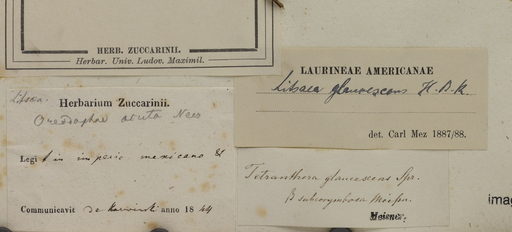 HERB. ZUCCARINII.
Herbar. Univ. Ludov. Maximil.
LAURINEAE AMERICANAE
Litsaea glaucescens H.B.K.
det. Carl Mez 1887/88.
Litsaea.
Herbarium Zuccarinii.
Oreodaphne Nees
Legit in imperio mexicano
Communicavit de Karwinski anno 1844
Tetranthera glaucescens Spr.
β subcorymbosa Meisn.
Meisner.
ima